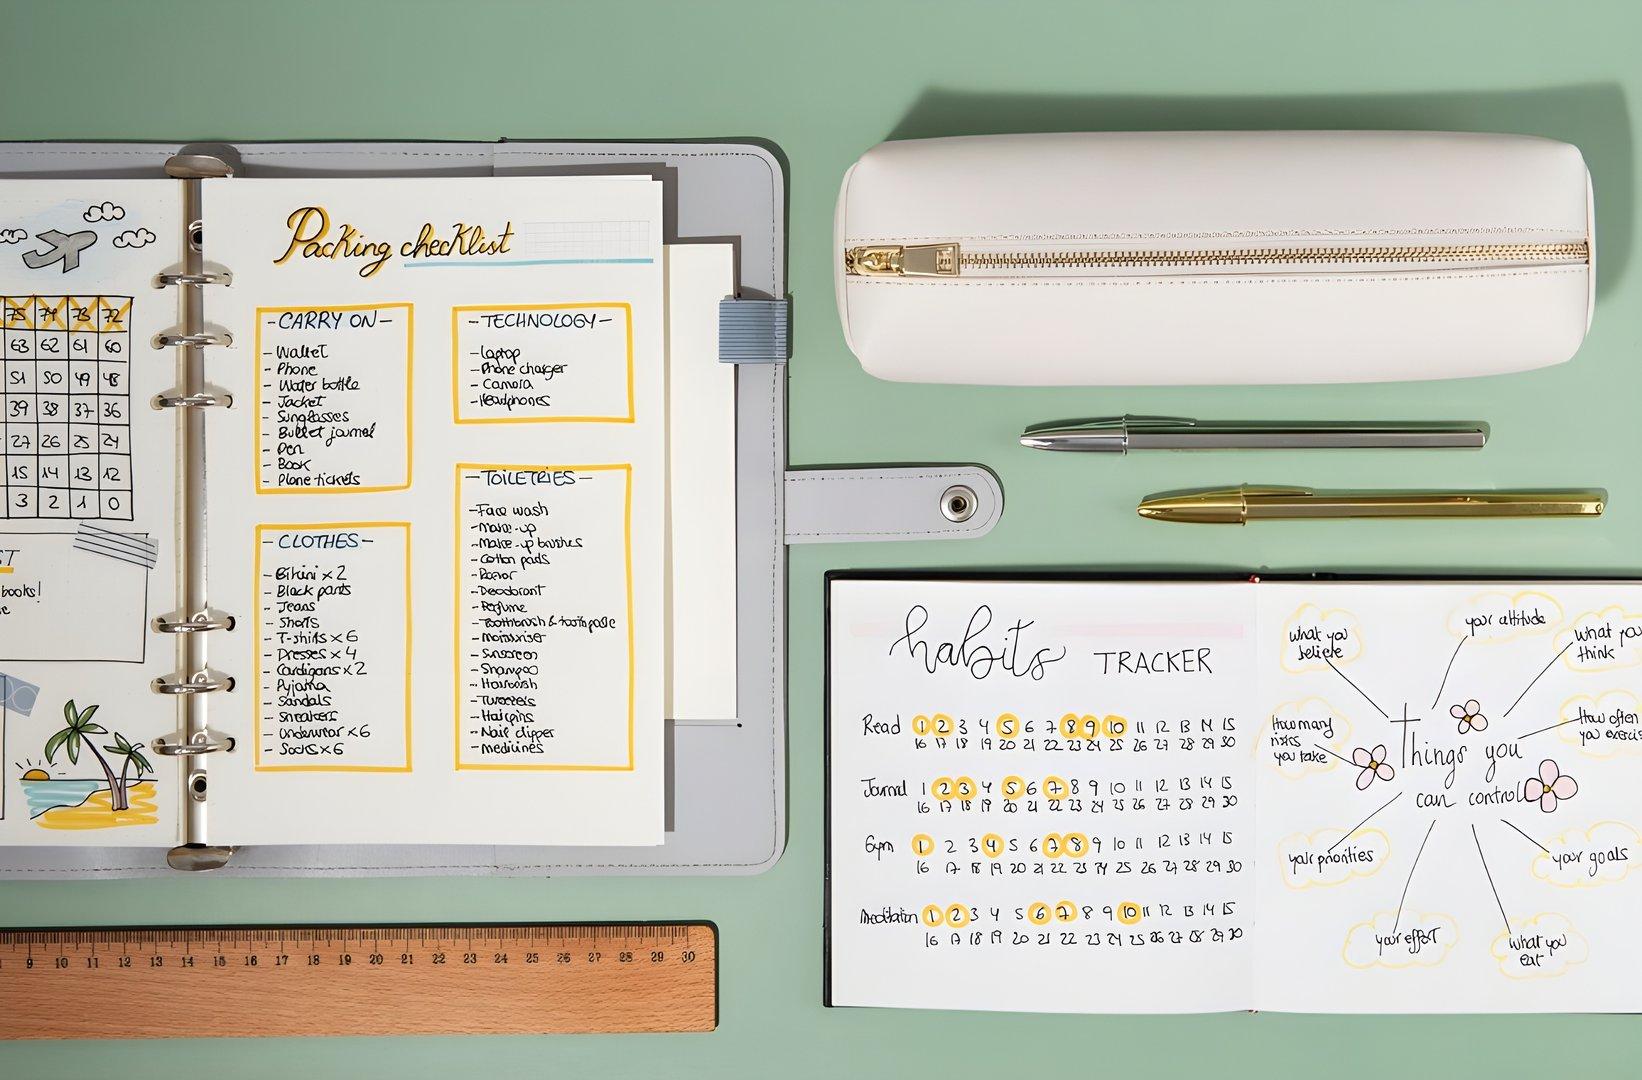 75 74 73 72
63 62 61 60
51 50 49 48
39 38 37 36
27 26 25 24
15 14 13 12
3 2 1 0
ST
books!
Packing checklist
- CARRY ON -
- Wallet
- Phone
- Water bottle
- Jacket
- Sunglasses
- Bullet journal
- Pen
- Book
- Plane tickets
- CLOTHES -
- Bikini x 2
- Black pants
- Jeans
- Shorts
- T-shirts x 6
- Dresses x 4
- Cardigans x 2
- Pyjama
- Sandals
- Sneakers
- Underwear x 6
- Socks x 6
- TECHNOLOGY -
- Laptop
- Phone charger
- Camera
- Headphones
- TOILETRIES -
- Face wash
- Make-up
- Make-up brushes
- Cotton pads
- Razor
- Deodorant
- Perfume
- Toothbrush & toothpaste
- Moisturiser
- Sunscreen
- Shampoo
- Hairbrush
- Tweezers
- Hairpins
- Nail clipper
- medicines
9 10 11 12 13 14 15 16 17 18 19 20 21 22 23 24 25 26 27 28 29 30
habits TRACKER
Read 1 2 3 4 5 6 7 8 9 10 11 12 13 14 15
16 17 18 19 20 21 22 23 24 25 26 27 28 29 30
Journal 1 2 3 4 5 6 7 8 9 10 11 12 13 14 15
16 17 18 19 20 21 22 23 24 25 26 27 28 29 30
Gym 1 2 3 4 5 6 7 8 9 10 11 12 13 14 15
16 17 18 19 20 21 22 23 24 25 26 27 28 29 30
Meditation 1 2 3 4 5 6 7 8 9 10 11 12 13 14 15
16 17 18 19 20 21 22 23 24 25 26 27 28 29 30
what you
believe
your attitude
what you
think
How many
risks
you take
How often
you exercis
Things you
can control
your priorities
your goals
your effort
what you
eat